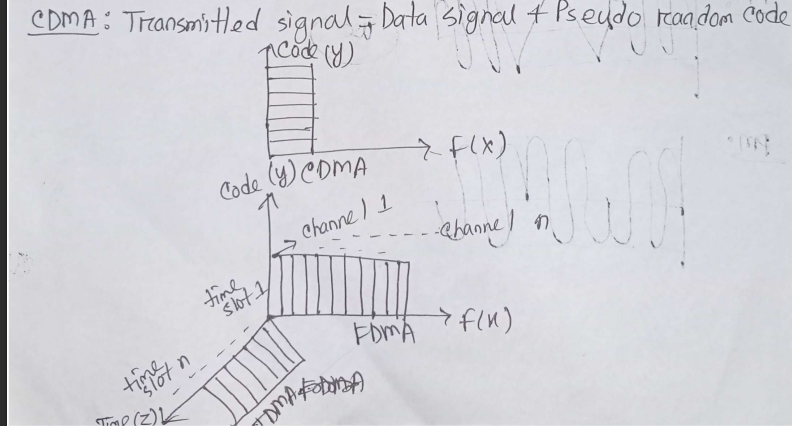 CDMA: Transmitted signal = Data signal + Pseudo random code
Code (y)
F(x)
CDMA
Code (y)
channel 1
channel n
time slot 1
F(x)
FDMA
time slot n
Time (z)